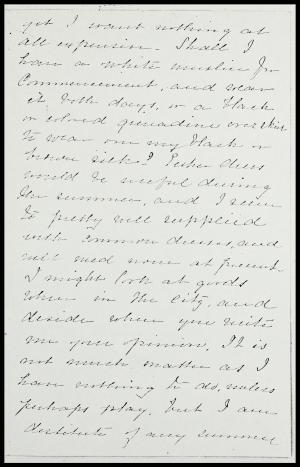 yet I want nothing at
all expensive. Shall I
have a white muslin for
Commencement, and wear
it both days, or a black
or colored grenadine over skirt
to wear over my black or
brown silk? Either dress
would be useful during
the summer, and I seem
to pretty well supplied
with common dresses, and
will need none at present.
I might look at goods
when in the city, and
decide when you write
me your opinion. It is
not much matter as I
have nothing to do, unless
perhaps play. But I am
destitute of any summer